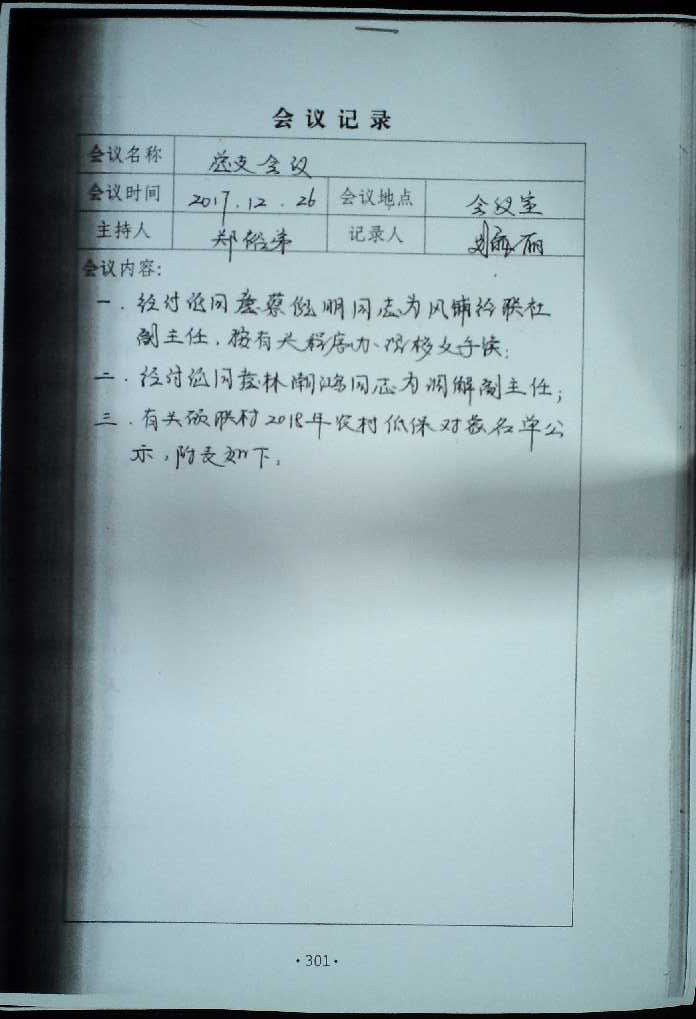 会议记录
会议名称 党支会议
会议时间 2017.12.26 会议地点 会议室
主持人 郑 记录人 刘丽
会议内容:
一.经讨论同意蔡 明同志为 联社
副主任.按有关程序办理移交手续;
二.经讨论同意林潮鸿同志为调解副主任;
三.有关硕联村2018年农村低保对象名单公
示,附表如下:
·301·